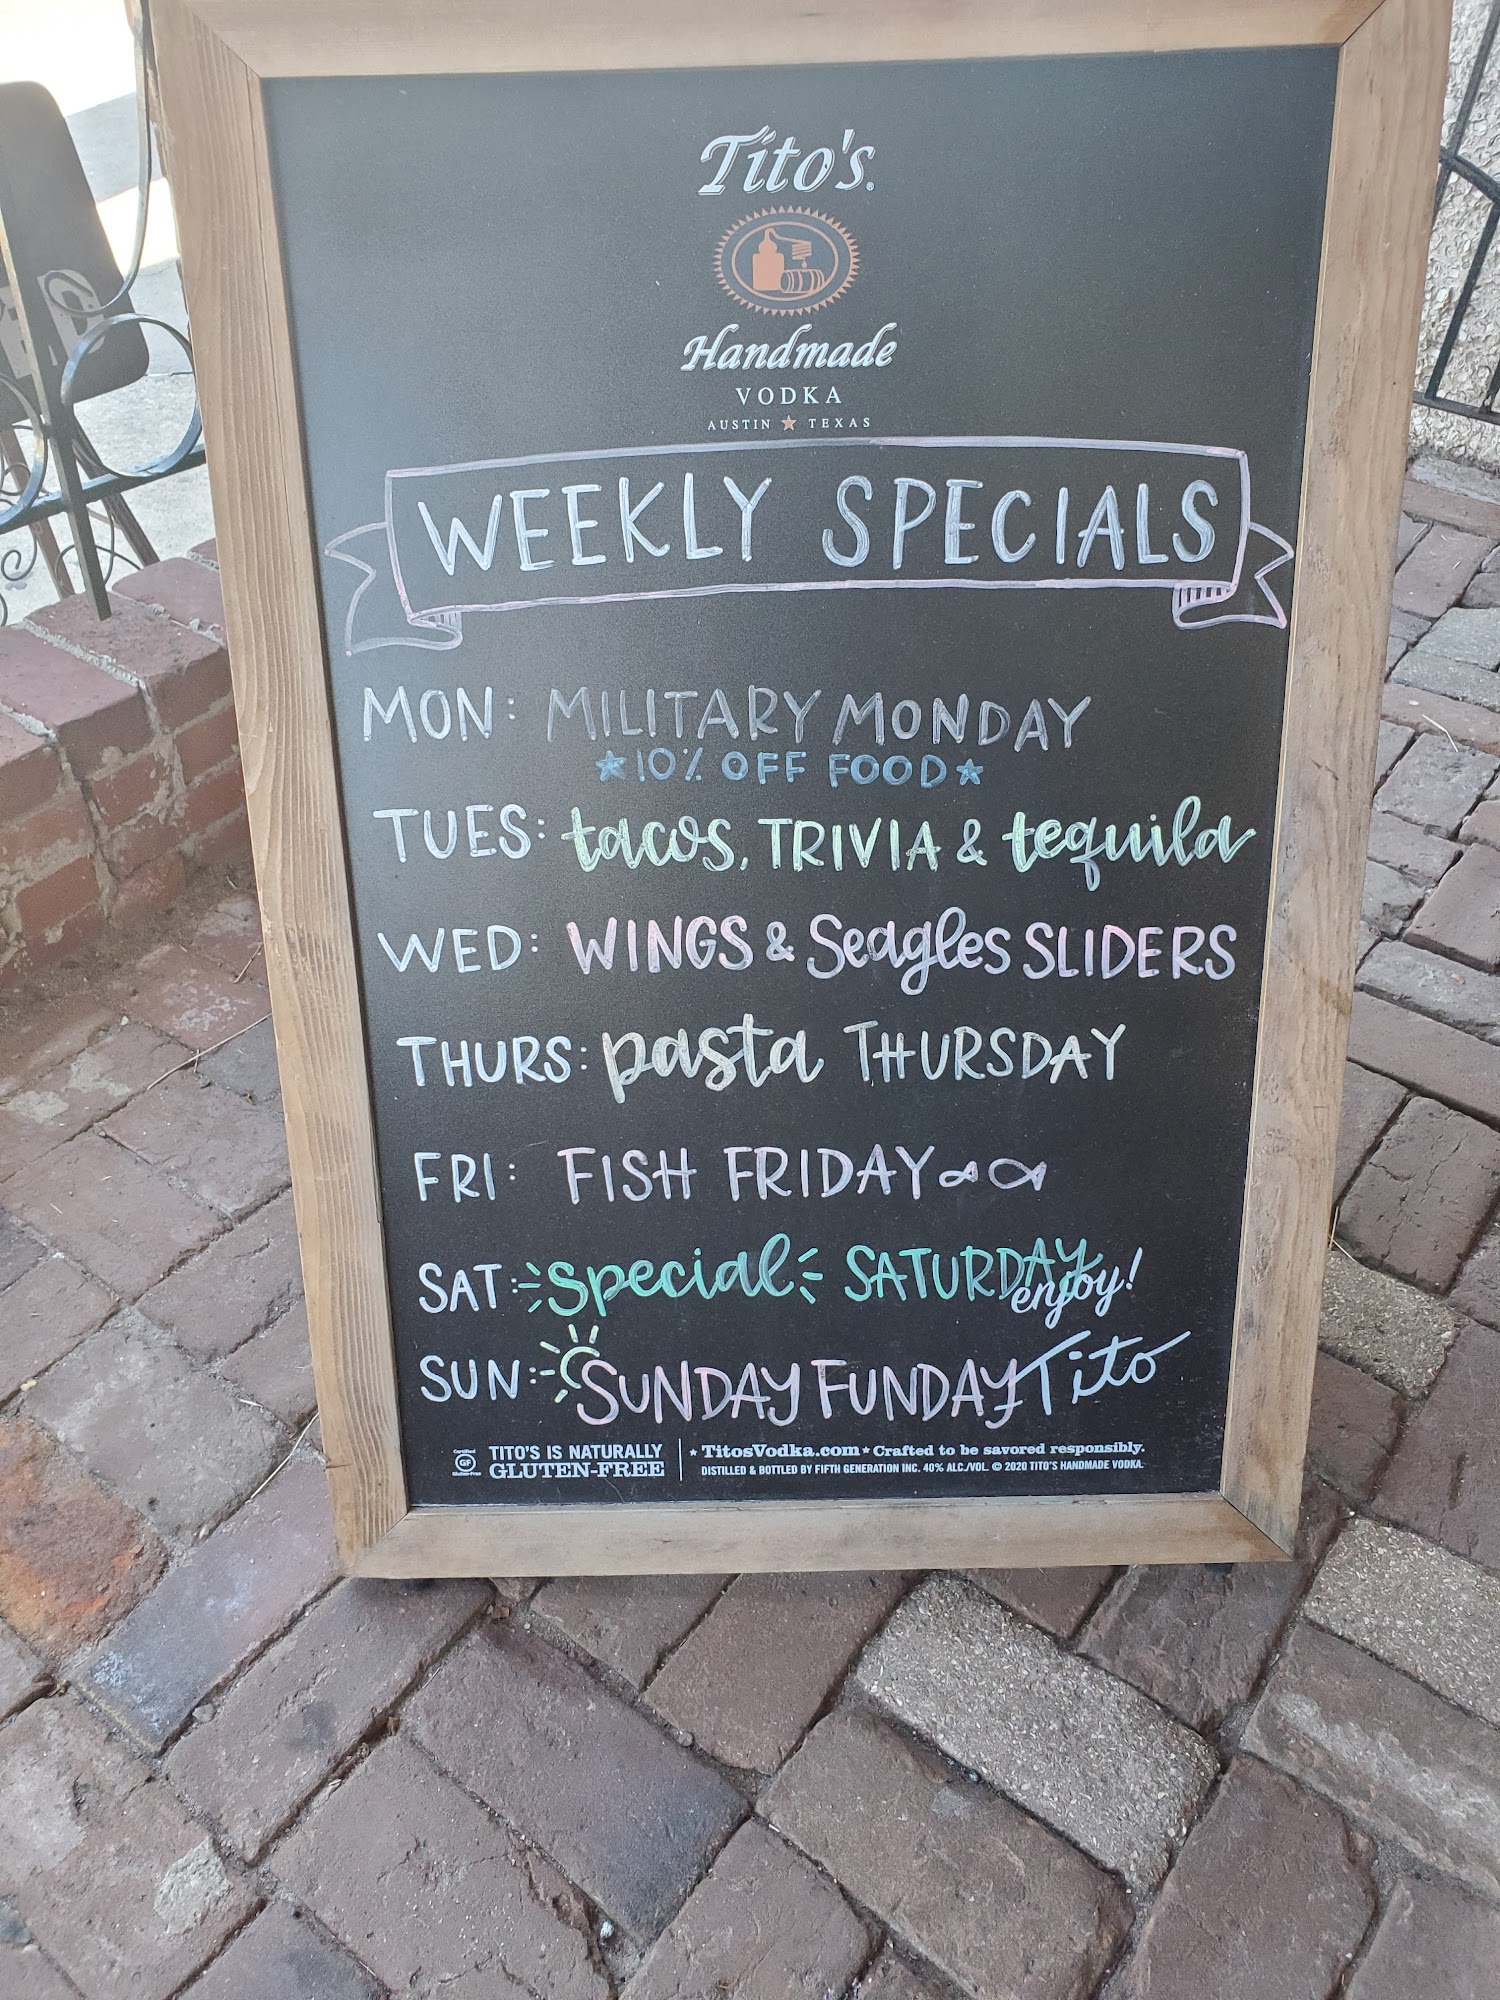 Tito's
Handmade
VODKA
AUSTIN ★ TEXAS
WEEKLY SPECIALS
MON: MILITARY MONDAY
★10% OFF FOOD★
TUES: tacos, TRIVIA & tequila
WED: WINGS & Seagles SLIDERS
THURS: pasta THURSDAY
FRI: FISH FRIDAY
SAT: Special SATURDAY
enjoy!
SUN: SUNDAY FUNDAY Tito
Certified GF Gluten-Free
TITO'S IS NATURALLY
GLUTEN-FREE
★ TitosVodka.com ★ Crafted to be savored responsibly.
DISTILLED & BOTTLED BY FIFTH GENERATION INC. 40% ALC./VOL. © 2020 TITO'S HANDMADE VODKA.